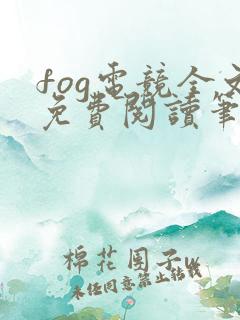 fog電競全文
免費閱讀筆
棉花团子w
未经同意禁止转载